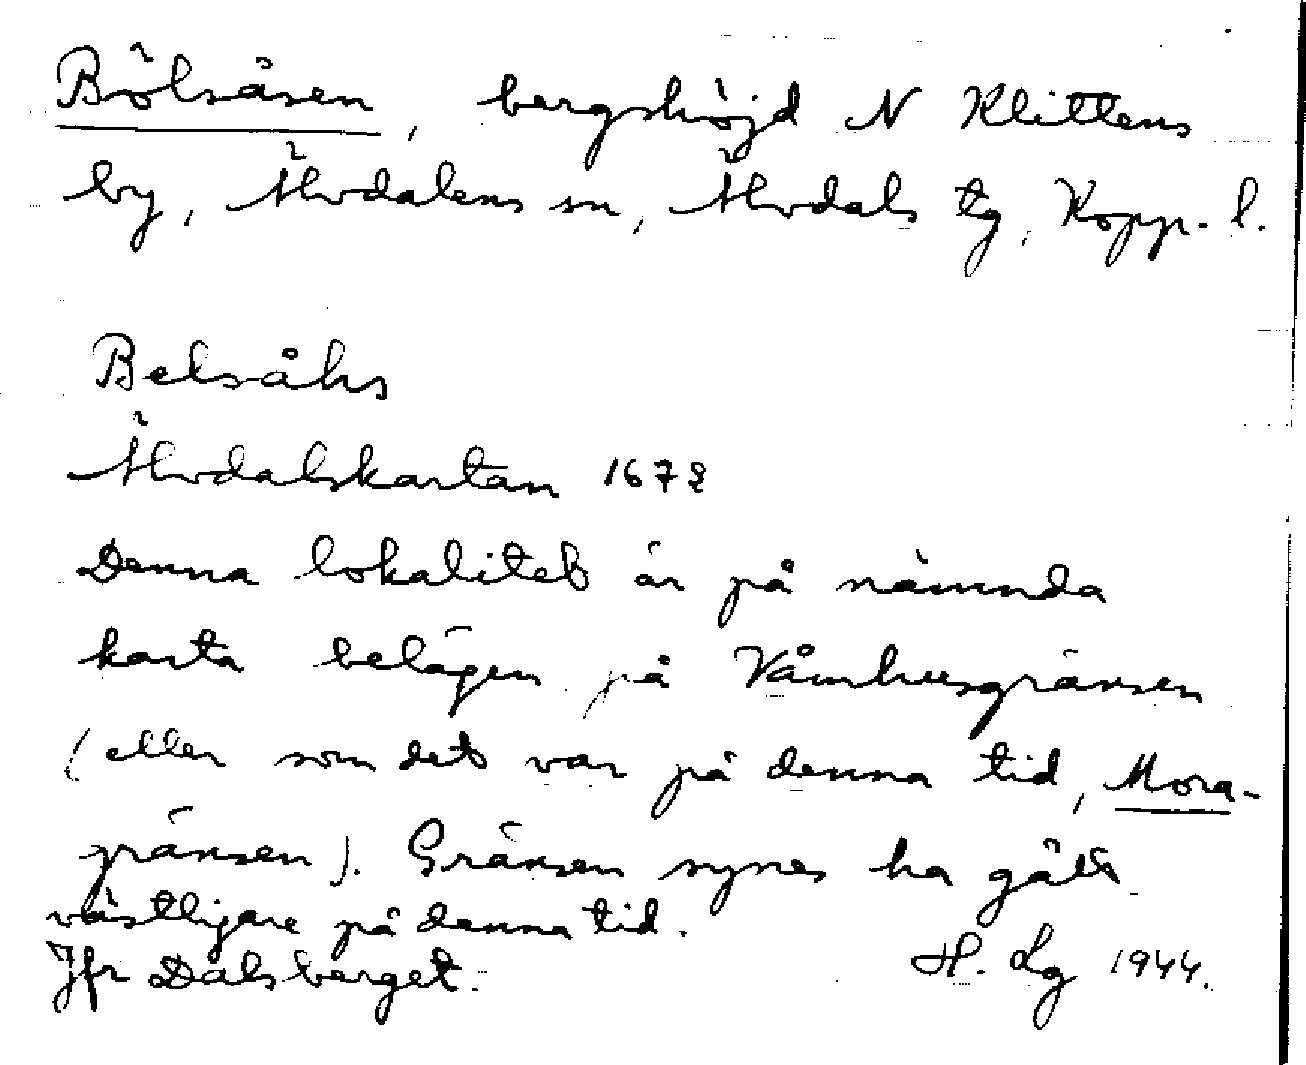 Bölsåsen, bergshöjd N Klittens
by, Älvdalens sn, Älvdals tg, Kopp. l.
Belsåhs
Älvdalskartan 1672
Denna lokalitet är på nämnda
karta belägen på Våmhusgränsen
(eller som det var på denna tid, Mora-
gränsen). Gränsen synes ha gått
västligare på denna tid.
Jfr Dalsberget.
H. Lg 1944.